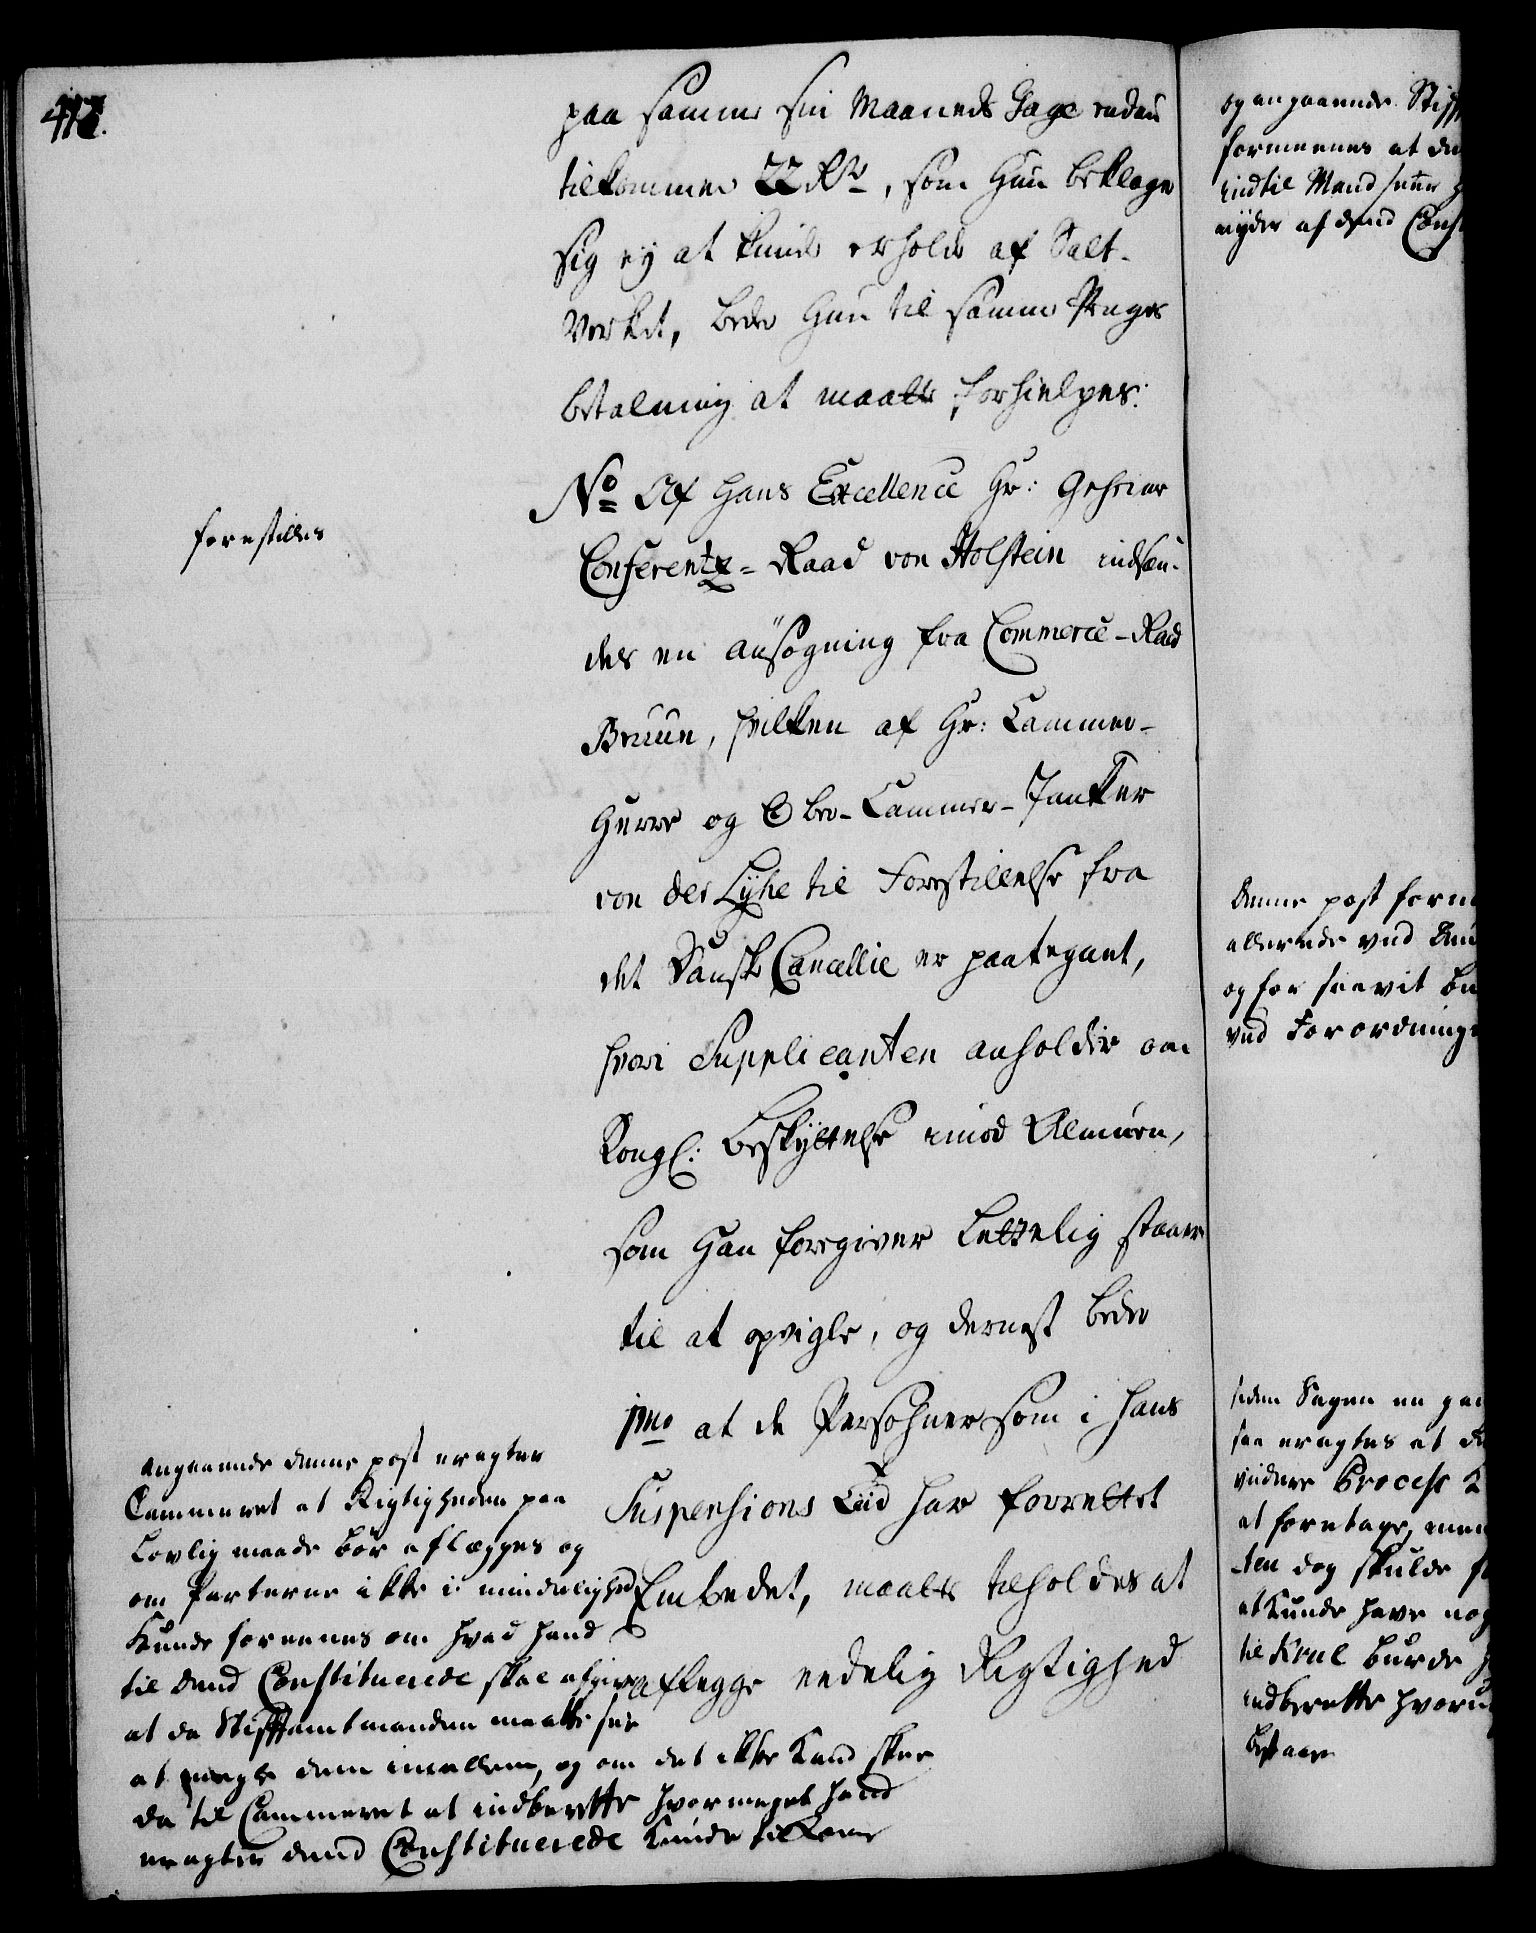 paa samme sin Maaneds Gage endnu
tilkommer 22 Rdr, som Hun beklager
sig ey at kunde erholde af Salt-
Verket, beder Hun til samme Penges
betalning at maatte forhielpes.
No Af Hans Excellence Hr: Geheime
Conferentz-Raad von Holstein indsen-
des en ansøgning fra Commerce-Raad
Bruun, hvilken af Hr: Cammer-
Herre og Ober-Cammer-Junker
von der Lyhe til Forestillelse fra
det Danske Cancellie er paategnet,
hvori Supplicanten anholder om
Kongl: beskyttelse imod Almuen,
som Han foregiver Lettelig staaer
til at opvigle, og dernest beder
1mo at de Persohner som i hans
Suspensions Tiid har forrettet
Embedet, maatte tilholdes at
aflegge eedelig Rigtighed
forestilles
angaaende denne post eragter
Cammeret at Rigtigheden paa
Lovlig maade bør aflægges og
om Parterne ikke i mindelighed
Kunde foreenes om hvad hand
til dend Constituerede skal afgive
at da Stiftamtmanden maatte see
at mægle dem imellem, og om det ikke Kand skee
da til Cammeret at indberette hvormeget hand
eragter dend Constituerede Kunde tilkome
og angaaende Stif
formeenes at de
indtil Mand seer
nyder af dend Const
Denne post form
allerede ved
og for saavit
ved Forordning
siden Sagen en
saa eragtes at
viidere Process
at foretage, men
ten dog skulde
at Kunde have nog
til Kral burde
indberette hvorud
bestaaer